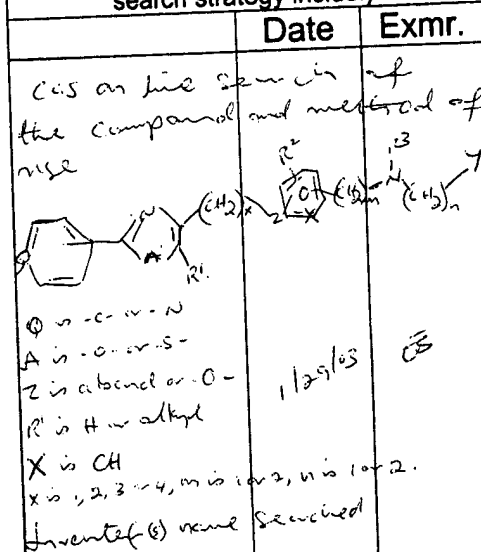 search strategy
Date Exmr.
cas on line search of
the compound and method of
use
R² R³ Y
N (CH2)x Z O (CH2)m N (CH2)n
Q A R¹ X
Q is -C- or -N
A is -O- or -S-
Z is a bond or -O-
R¹ is H or alkyl
X is CH
x is 1, 2, 3 or 4, m is 1 or 2, n is 1 or 2.
Inventor(s) name searched
1/29/03